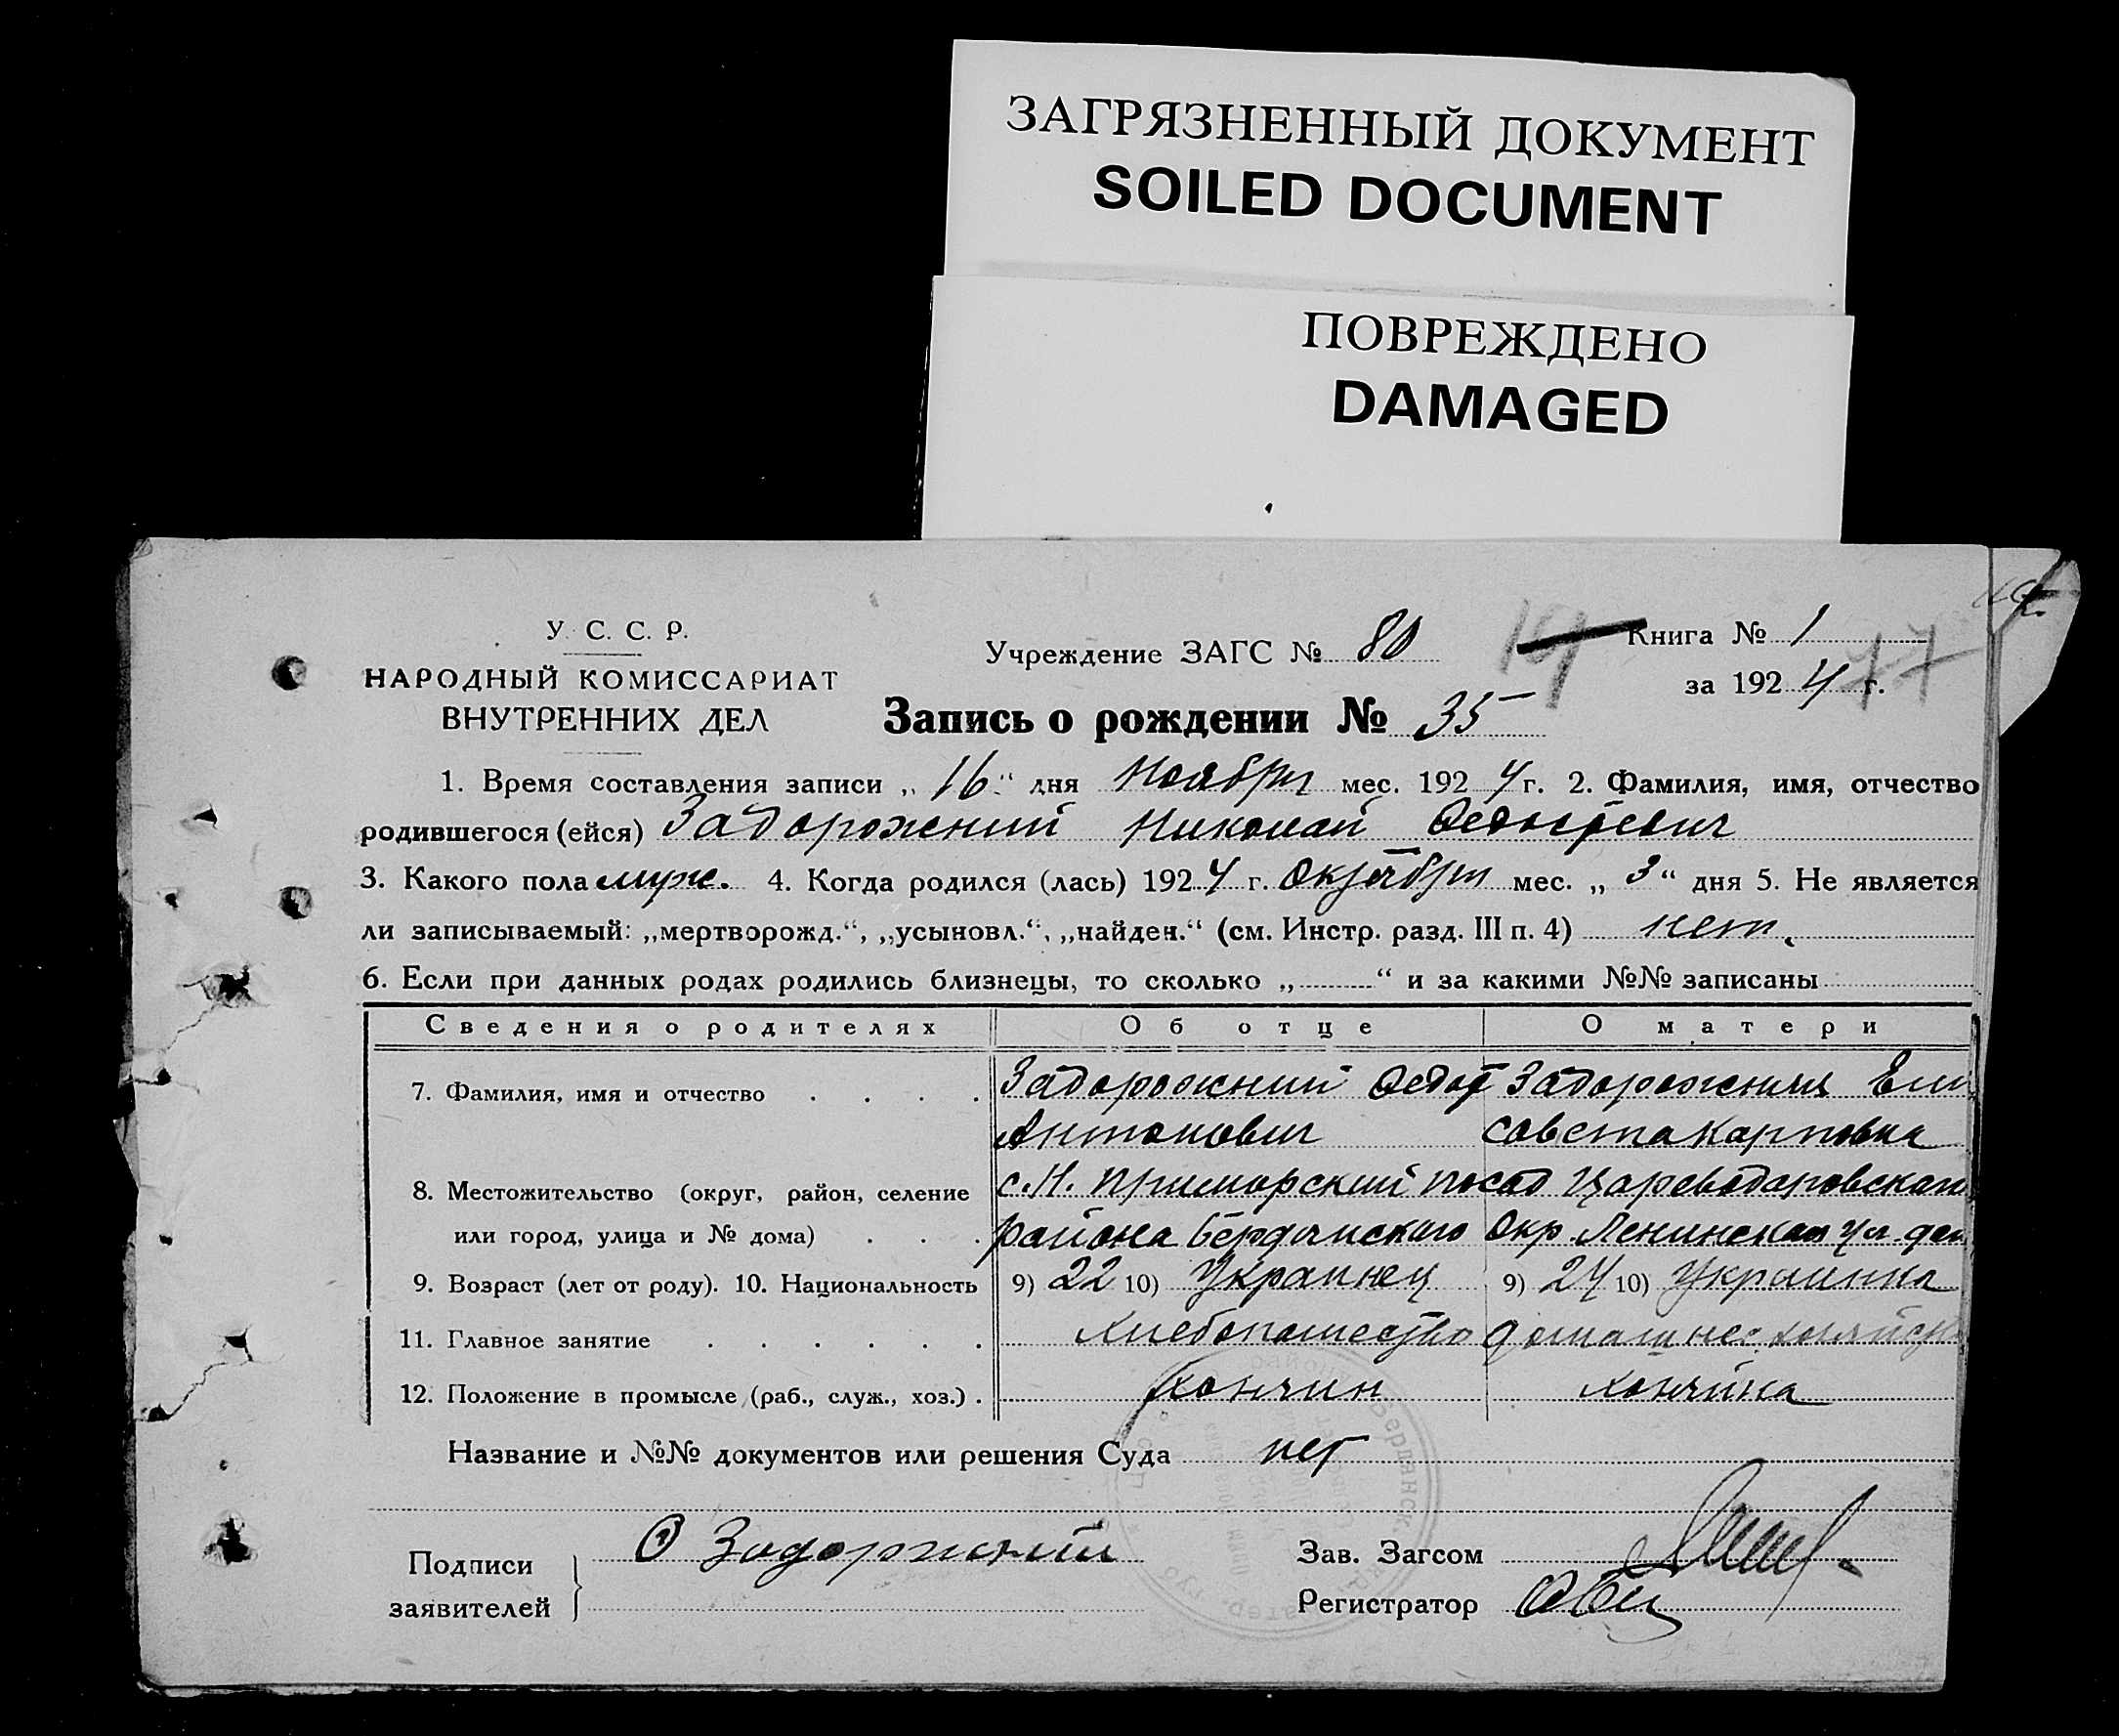 ЗАГРЯЗНЕННЫЙ ДОКУМЕНТ
SOILED DOCUMENT
ПОВРЕЖДЕНО
DAMAGED
У. С. С. Р.
НАРОДНЫЙ КОМИССАРИАТ
ВНУТРЕННИХ ДЕЛ
Учреждение ЗАГС № 80
Книга № 1
за 1924 г.
Запись о рождении № 35
1. Время составления записи „16“ дня Ноября мес. 1924 г. 2. Фамилия, имя, отчество
родившегося (ейся) Задорожний Николай
3. Какого пола муж. 4. Когда родился (лась) 1924 г. Октября мес. „3“ дня 5. Не является
ли записываемый: „мертворожд.“, „усыновл.“, „найден.“ (см. Инстр. разд. III п. 4) нет.
6. Если при данных родах родились близнецы, то сколько „ “ и за какими №№ записаны
Сведения о родителях Об отце О матери
7. Фамилия, имя и отчество Задорожний Федот Задорожняя Ели
Антонович савета Карповна
8. Местожительство (округ, район, селение с. Н. Приморский посад Цареводаровского
или город, улица и № дома) района Бердянского Окр. Ленинская ул. дом
9. Возраст (лет от роду). 10. Национальность 9) 22 10) Украинец 9) 24 10) Украинка
11. Главное занятие Хлебопашество домашнее
12. Положение в промысле (раб., служ., хоз.) Хозяин Хозяйка
Название и №№ документов или решения Суда нет
Подписи
заявителей
Ф Задорожний
Зав. Загсом
Регистратор